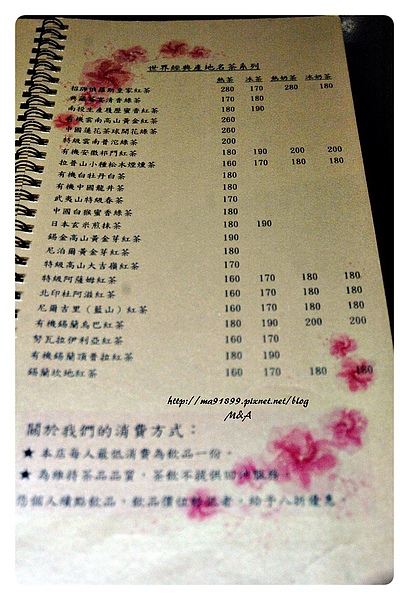 世界經典產地名茶系列
熱茶 冰茶 熱奶茶 冰奶茶
招牌俄羅斯皇家紅茶 280 170 280 180
典藏茶宴清香綠茶 170 180
南投生產履歷蜜香紅茶 180 190
有機雲南高山黃金紅茶 260
中國蓮花茶球開花綠茶 260
特級雲南普沱綠茶 200
有機安徽祁門紅茶 180 190 200 200
拉普山小種松木煙燻茶 160 170 180 180
有機白牡丹白茶 180
有機中國龍井茶 180
武夷山特級春茶 170
中國白猴蜜香綠茶 180
日本玄米煎抹茶 180 190
錫金高山黃金芽紅茶 190
尼泊爾黃金芽紅茶 180
特級高山大吉嶺紅茶 170
特級阿薩姆紅茶 160 170 180 180
北印杜阿滋紅茶 160 170 180 180
尼爾吉里(藍山)紅茶 160 170 180 180
有機錫蘭烏巴紅茶 180 190 200 200
努瓦拉伊利亞紅茶 160 170
有機錫蘭頂普拉紅茶 180 190
錫蘭坎地紅茶 160 170 180 180
http://ma91899.pixnet.net/blog
M&A
關於我們的消費方式：
★ 本店每人最低消費為飲品一份。
★ 為維持茶品品質，茶飲不提供回沖服務。
個人續點飲品，飲品價位較低者，給予八折優惠。